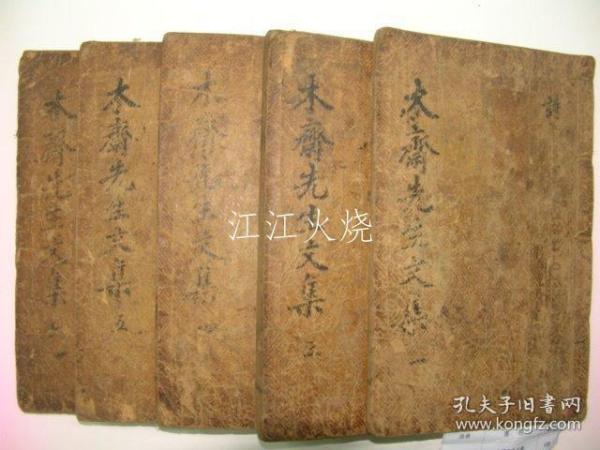 詩
木齋先生文集 一
木齋先生文集 三
木齋先生文集 四
木齋先生文集 五
木齋先生文集
江江火烧
孔夫子旧书网
www.kongfz.com